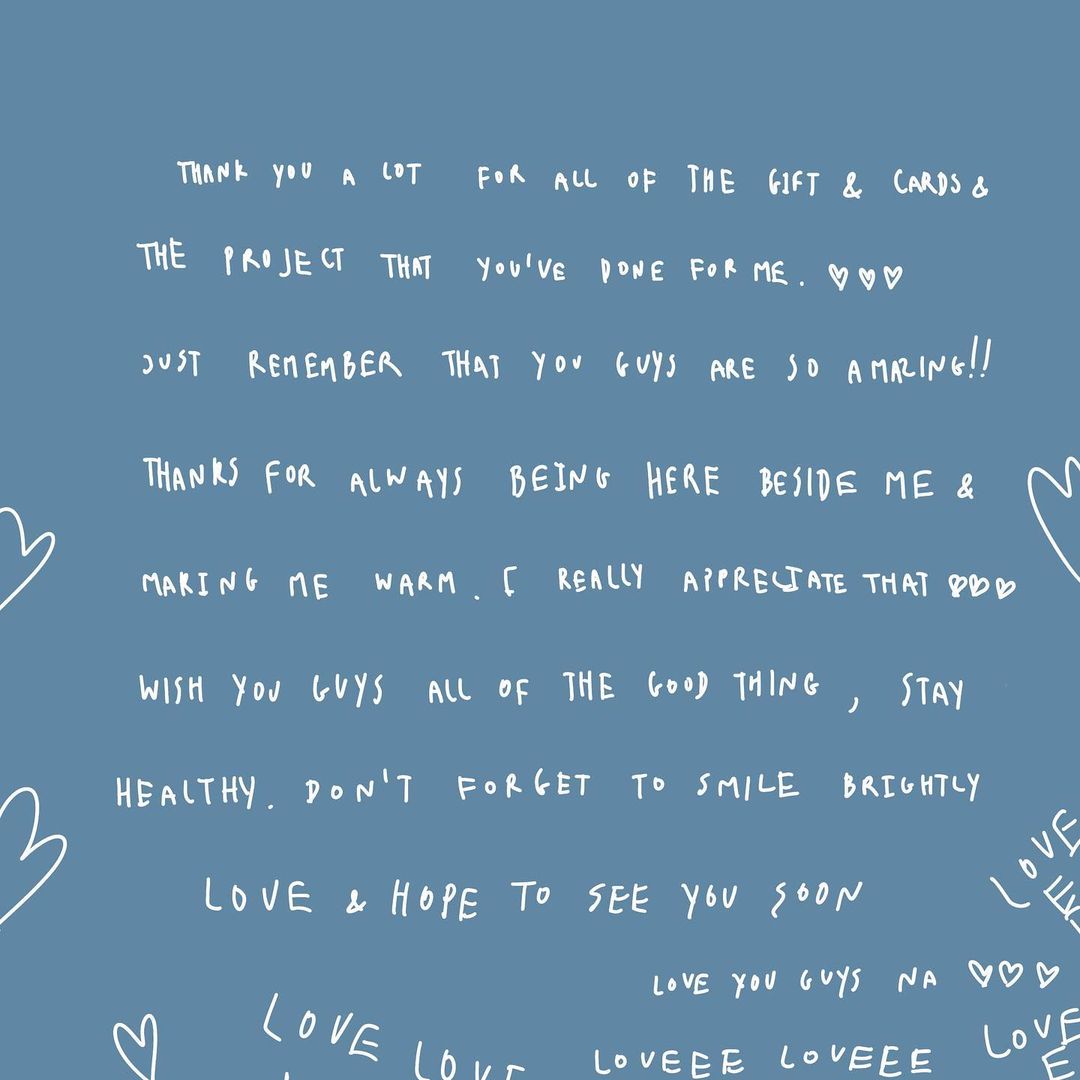 THANK YOU A LOT FOR ALL OF THE GIFT & CARDS &
THE PROJECT THAT YOU'VE DONE FOR ME. ♡♡♡
JUST REMEMBER THAT YOU GUYS ARE SO AMAZING!!
THANKS FOR ALWAYS BEING HERE BESIDE ME &
MAKING ME WARM. I REALLY APPRECIATE THAT ♡♡♡
WISH YOU GUYS ALL OF THE GOOD THING, STAY
HEALTHY. DON'T FORGET TO SMILE BRIGHTLY
LOVE & HOPE TO SEE YOU SOON
LOVE YOU GUYS NA ♡♡♡
LOVE
LOVE
LOVE
LOVEEE LOVEEE
LOVE